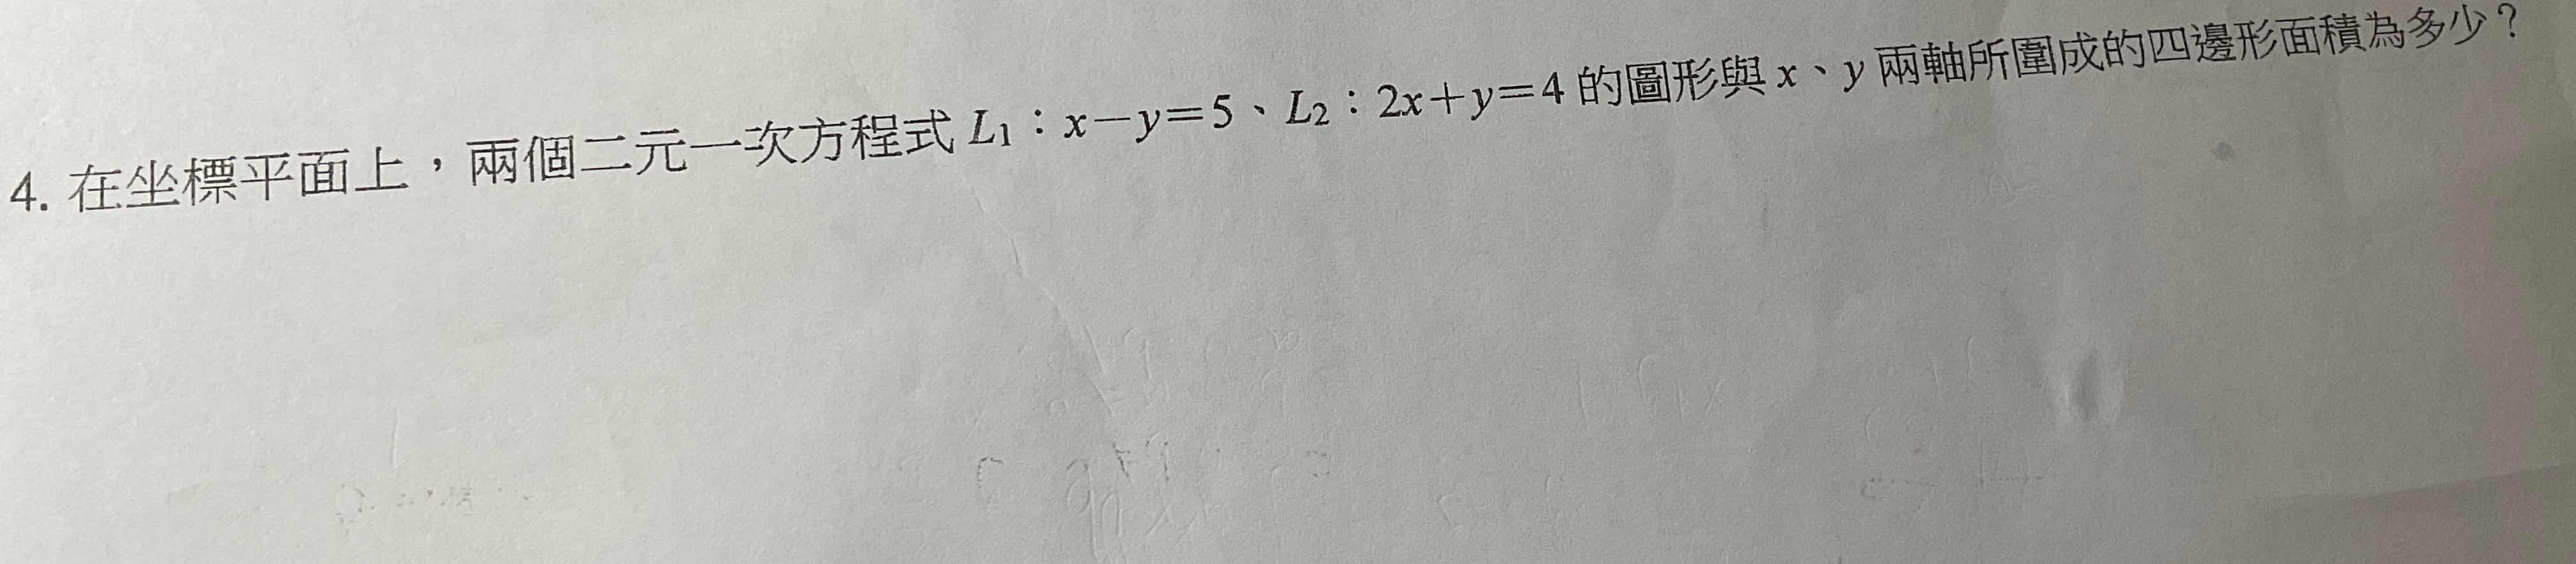 4. 在坐標平面上，兩個二元一次方程式 L₁：x－y＝5、L₂：2x＋y＝4 的圖形與 x、y 兩軸所圍成的四邊形面積為多少？